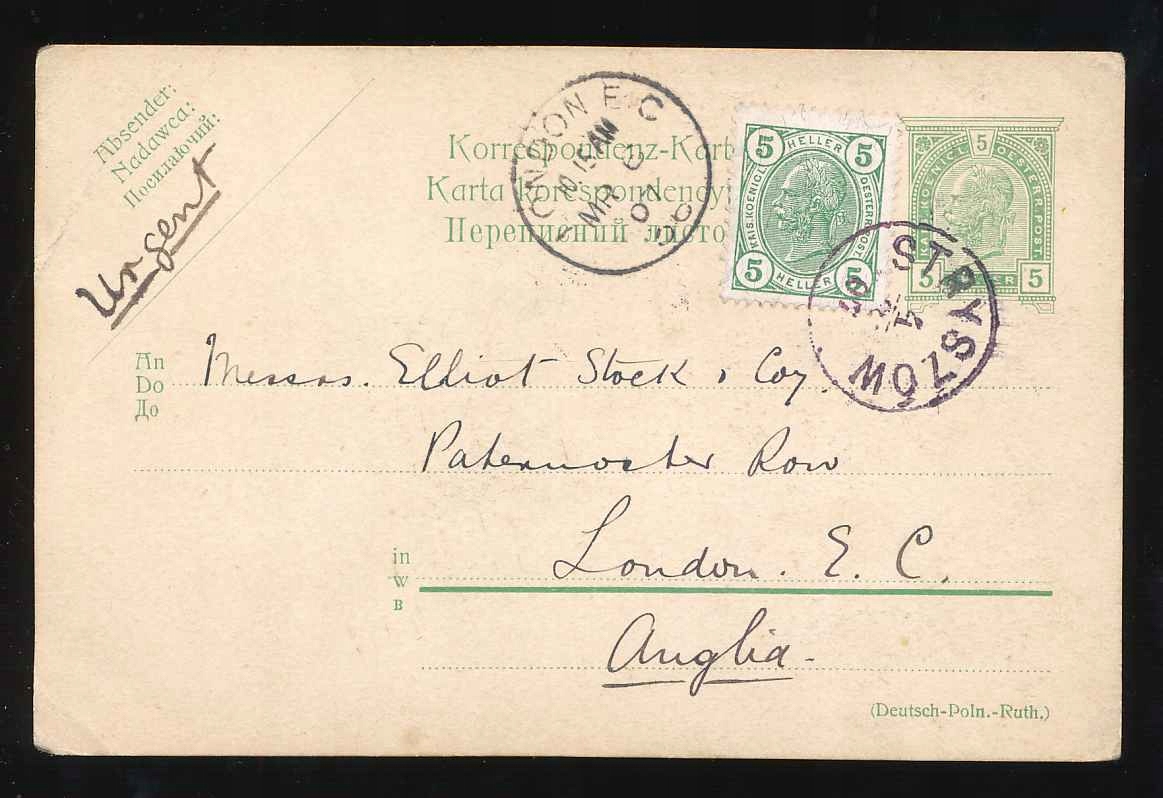 Absender:
Nadawca:
Посилаючий:
Urgent
Korrespondenz-Kart
Karta korespondency
Переписний листо
LONDON E.C
10 15 AM
MR
07
5 HELLER 5
KAIS. KOENIGL. OESTERR. POST.
5 HELLER 5
5
KOENIGL OESTERR. POST.
5 5
STRY
MOZSY
An
Do
До
Messrs. Elliot Stock & Coy.
Paternoster Row
in
W
В
London. E. C.
Anglia-
(Deutsch-Poln.-Ruth.)